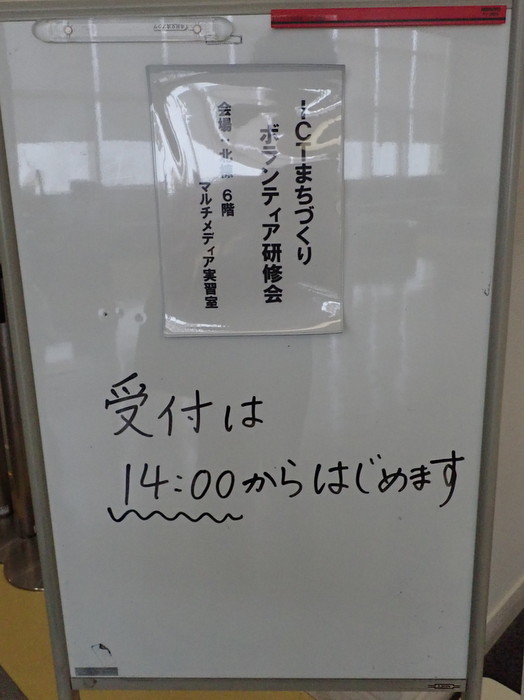 ICTまちづくり
ボランティア研修会
会場：北棟 6階
マルチメディア実習室
受付は
14:00からはじめます